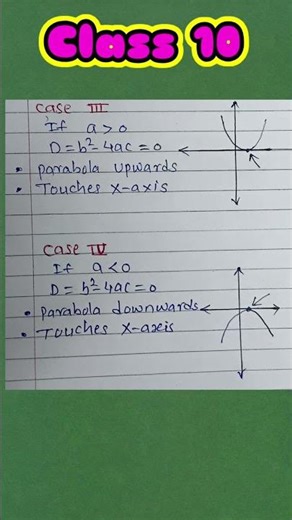 Class 10
Case III
If a > 0
D = b² - 4ac = 0
• Parabola upwards
• Touches x-axis
Case IV
If a < 0
D = b² - 4ac = 0
• Parabola downwards
• Touches x-axis